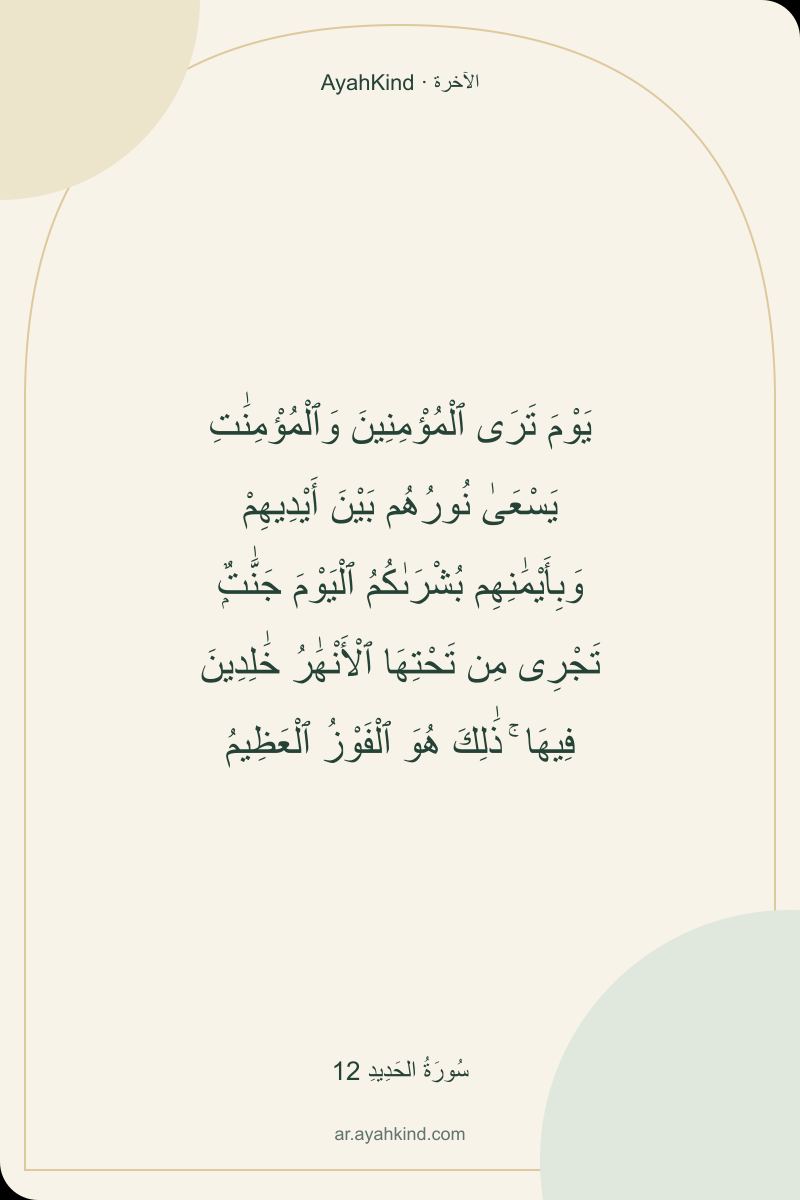 AyahKind · الآخرة
يَوْمَ تَرَى ٱلْمُؤْمِنِينَ وَٱلْمُؤْمِنَٰتِ
يَسْعَىٰ نُورُهُم بَيْنَ أَيْدِيهِمْ
وَبِأَيْمَٰنِهِم بُشْرَىٰكُمُ ٱلْيَوْمَ جَنَّٰتٌۭ
تَجْرِى مِن تَحْتِهَا ٱلْأَنْهَٰرُ خَٰلِدِينَ
فِيهَا ۚ ذَٰلِكَ هُوَ ٱلْفَوْزُ ٱلْعَظِيمُ
سُورَةُ الحَدِيدِ 12
ar.ayahkind.com